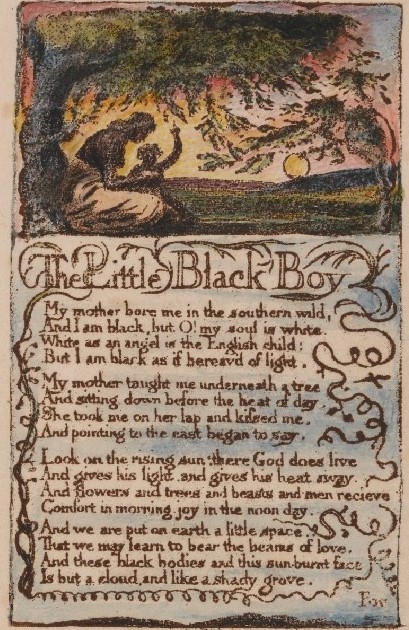 The Little Black Boy
My mother bore me in the southern wild,
And I am black, but O! my soul is white.
White as an angel is the English child:
But I am black as if bereav'd of light.
My mother taught me underneath a tree
And sitting down before the heat of day.
She took me on her lap and kissed me.
And pointing to the east began to say.
Look on the rising sun: there God does live
And gives his light. and gives his heat away.
And flowers and trees and beasts and men recieve
Comfort in morning joy in the noon day.
And we are put on earth a little space.
That we may learn to bear the beams of love.
And these black bodies and this sun-burnt face
Is but a cloud, and like a shady grove.
For